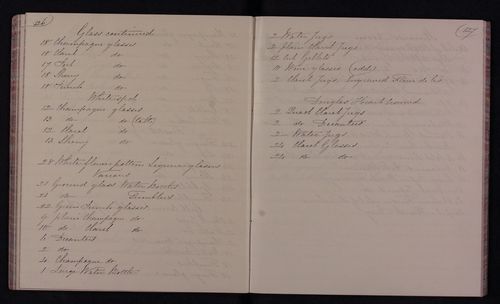 126
Glass continued
18 Champagne glasses
18 Claret do
17 Hock do
18 Sherry do
18 Liqueur do
White spot
12 Champagne glasses
13 do do (tall)
12 Claret do
13 Sherry do
28 White flower pattern Liqueur glasses
Various
21 Ground glass Water Bottles
21 do Tumblers
42 Green glasses
9 plain Champagne do
10 do Claret do
6 Decanters
2 do
20 Champagne do
1 Large Water Bottle
127
2 Water Jugs
2 plain Claret Jugs
12 cut Goblets
11 Wine glasses (odds)
2 Claret Jugs, Engraved Fleur de lis
Douglas Heart
2 Quart Claret Jugs
2 do Decanters
2 Water Jugs
24 Claret Glasses
24 do do